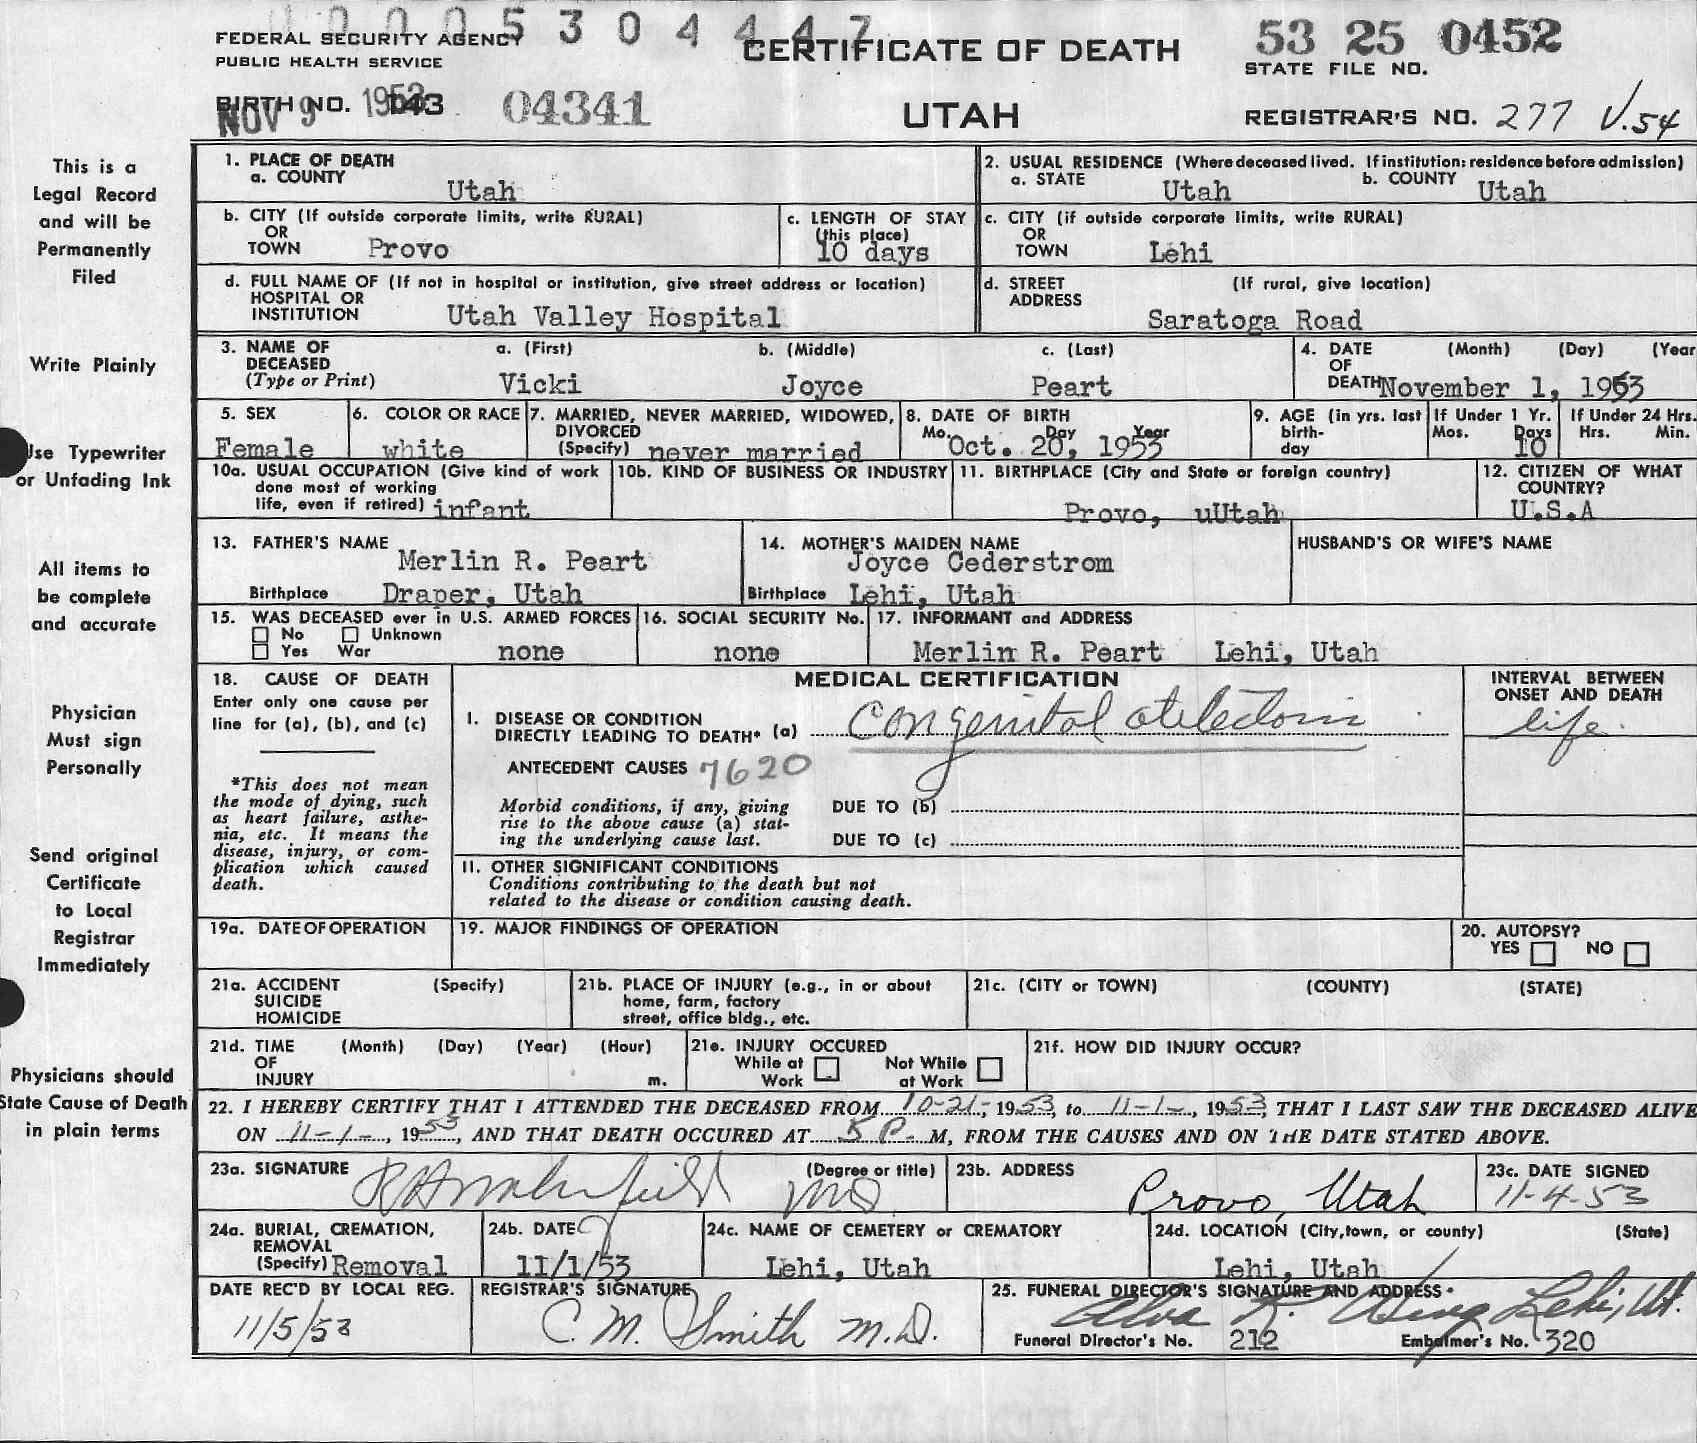 0 0 0 5 3 0 4 4 4 7
FEDERAL SECURITY AGENCY
PUBLIC HEALTH SERVICE
CERTIFICATE OF DEATH
53 25 0452
STATE FILE NO.
BIRTH NO. 143 04341
NOV 9 1953
UTAH
REGISTRAR'S NO. 277 V.54
This is a
Legal Record
and will be
Permanently
Filed
Write Plainly
Use Typewriter
or Unfading Ink
All items to
be complete
and accurate
Physician
Must sign
Personally
Send original
Certificate
to Local
Registrar
Immediately
Physicians should
State Cause of Death
in plain terms
1. PLACE OF DEATH
a. COUNTY Utah
2. USUAL RESIDENCE (Where deceased lived. If institution: residence before admission)
a. STATE Utah b. COUNTY Utah
b. CITY (If outside corporate limits, write RURAL)
OR
TOWN Provo
c. LENGTH OF STAY
(this place)
10 days
c. CITY (if outside corporate limits, write RURAL)
OR
TOWN Lehi
d. FULL NAME OF (If not in hospital or institution, give street address or location)
HOSPITAL OR
INSTITUTION Utah Valley Hospital
d. STREET (If rural, give location)
ADDRESS
Saratoga Road
3. NAME OF
DECEASED
(Type or Print)
a. (First) b. (Middle) c. (Last)
Vicki Joyce Peart
4. DATE (Month) (Day) (Year
OF
DEATH November 1, 1953
5. SEX
Female
6. COLOR OR RACE
white
7. MARRIED, NEVER MARRIED, WIDOWED,
DIVORCED
(Specify) never married
8. DATE OF BIRTH
Mo. Day Year
Oct. 20, 1953
9. AGE (in yrs. last
birth-
day
If Under 1 Yr.
Mos. Days
10
If Under 24 Hrs.
Hrs. Min.
10a. USUAL OCCUPATION (Give kind of work
done most of working
life, even if retired) infant
10b. KIND OF BUSINESS OR INDUSTRY
11. BIRTHPLACE (City and State or foreign country)
Provo, uUtah
12. CITIZEN OF WHAT
COUNTRY?
U.S.A
13. FATHER'S NAME
Merlin R. Peart
Birthplace Draper, Utah
14. MOTHER'S MAIDEN NAME
Joyce Cederstrom
Birthplace Lehi, Utah
HUSBAND'S OR WIFE'S NAME
15. WAS DECEASED ever in U.S. ARMED FORCES
No Unknown
Yes War none
16. SOCIAL SECURITY No.
none
17. INFORMANT and ADDRESS
Merlin R. Peart Lehi, Utah
18. CAUSE OF DEATH
Enter only one cause per
line for (a), (b), and (c)
*This does not mean
the mode of dying, such
as heart failure, asthe-
nia, etc. It means the
disease, injury, or com-
plication which caused
death.
MEDICAL CERTIFICATION
I. DISEASE OR CONDITION
DIRECTLY LEADING TO DEATH* (a) Congenital atelectasis
ANTECEDENT CAUSES 7620
Morbid conditions, if any, giving
rise to the above cause (a) stat-
ing the underlying cause last.
DUE TO (b)
DUE TO (c)
II. OTHER SIGNIFICANT CONDITIONS
Conditions contributing to the death but not
related to the disease or condition causing death.
INTERVAL BETWEEN
ONSET AND DEATH
life.
19a. DATE OF OPERATION
19. MAJOR FINDINGS OF OPERATION
20. AUTOPSY?
YES NO
21a. ACCIDENT (Specify)
SUICIDE
HOMICIDE
21b. PLACE OF INJURY (e.g., in or about
home, farm, factory
street, office bldg., etc.
21c. (CITY or TOWN) (COUNTY) (STATE)
21d. TIME (Month) (Day) (Year) (Hour)
OF
INJURY m.
21e. INJURY OCCURED
While at Not While
Work at Work
21f. HOW DID INJURY OCCUR?
22. I HEREBY CERTIFY THAT I ATTENDED THE DECEASED FROM 10-21-, 1953, to 11-1-, 1953, THAT I LAST SAW THE DECEASED ALIVE
ON 11-1-, 1953, AND THAT DEATH OCCURED AT 5 P. M, FROM THE CAUSES AND ON THE DATE STATED ABOVE.
23a. SIGNATURE (Degree or title)
MD
23b. ADDRESS
Provo, Utah
23c. DATE SIGNED
11-4-53
24a. BURIAL, CREMATION,
REMOVAL
(Specify) Removal
24b. DATE
11/1/53
24c. NAME OF CEMETERY or CREMATORY
Lehi, Utah
24d. LOCATION (City, town, or county) (State)
Lehi, Utah
DATE REC'D BY LOCAL REG.
11/5/53
REGISTRAR'S SIGNATURE
C. M. Smith M.D.
25. FUNERAL DIRECTOR'S SIGNATURE AND ADDRESS
Alva R. Wing Lehi, Ut.
Funeral Director's No. 212 Embalmer's No. 320